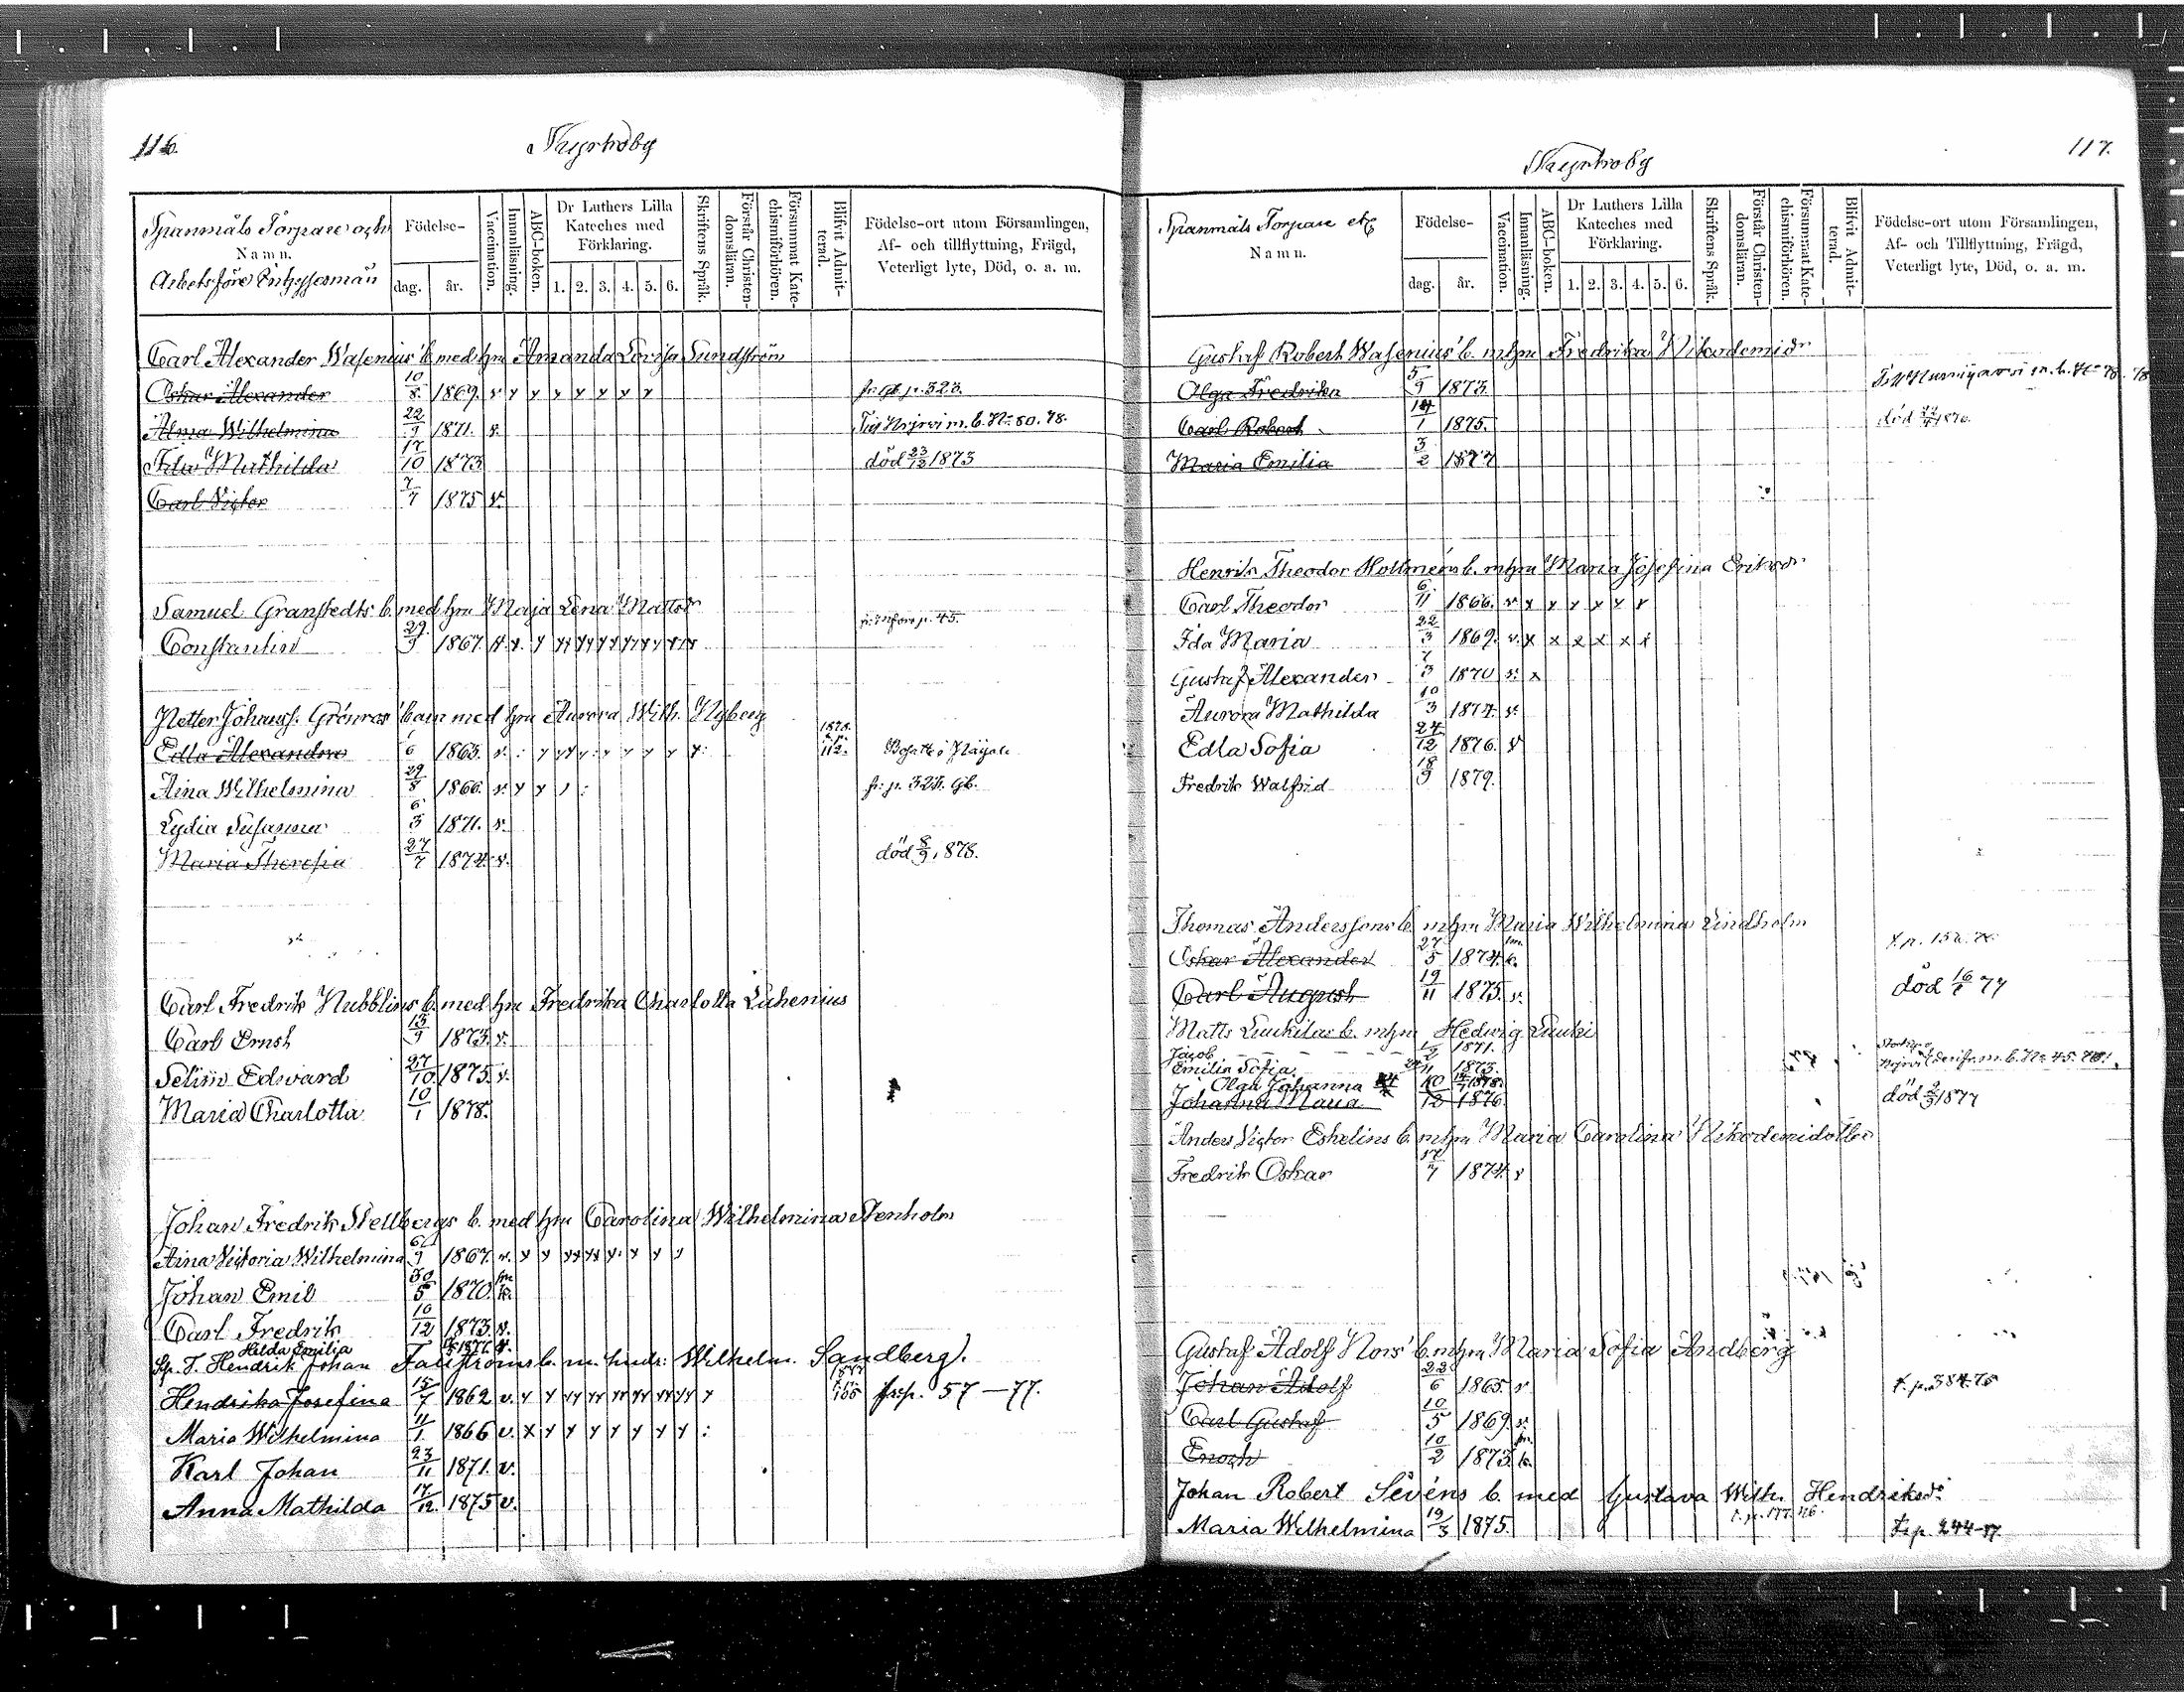 116.
Spanmåls Torpare och
Namn.
Arbetsföre
Födelse-
dag. år.
Vaccination.
Innanläsning.
ABC-boken.
Dr Luthers Lilla
Kateches med
Förklaring.
1. 2. 3. 4. 5. 6.
Skriftens Språk.
Förstår Christen-
domsläran.
Försummat Kate-
chismiförhören.
Blifvit Admit-
terad.
Födelse-ort utom Församlingen,
Af- och tillflyttning, Frägd,
Veterligt lyte, Död, o. a. m.
Carl Alexander Wasenius' b. med hu Amanda Lovisa Sundström
Oskar Alexander 10/8 1869. v y y y y y y y p. 323.
Alma Wilhelmina 22/9 1871. v. m. b. No 80. 78.
Ida Mathilda 17/10 1873 död 23/12 1873
Carl Victor 7/7 1875 v.
Samuel Granstedts b. med hu Maja Lena Mattsdr
Constantin 29/9 1867. p. 45.
Petter Johanss. Grönroos' barn med hu Aurora Wilh. Nyberg
Edla Alexandra 1/6 1863. v. 1878. 112.
Aina Wilhelmina 29/8 1866. v. y y fr. p. 323. Gb.
Lydia Susanna 6/3 1871. v.
Maria Theresia 27/7 1874. v. död 8/9 1878.
Carl Fredrik Nubblins b. med hu Fredrika Charlotta Luhenius
Carl Ernst 13/9 1873 v.
Selim Edward 27/10. 1875. v.
Maria Charlotta 10/1 1878.
Johan Fredrik Stellbergs b. med hu Carolina Wilhelmina Stenholm
Aina Victoria Wilhelmina 6/9 1867. v. y y yy yy y. y y y
Johan Emil 30/5 1870.
Carl Fredrik 10/12 1873. v.
Hilda Emilia 1876. v.
Sp. T. Hendrik Johan Faustroms b. m. hust: Wilhelm. Sandberg.
Hendrika Josefina 15/7 1862 v. y y yy yy yy yy yy yy y 1877 fr. p. 57—77.
Maria Wilhelmina 11/1 1866 v. x y y y y y y y :
Karl Johan 23/11 1871. v.
Anna Mathilda 17/12. 1875 v.
117.
Spanmåls Torpare etc
Namn.
Födelse-
dag. år.
Vaccination.
Innanläsning.
ABC-boken.
Dr Luthers Lilla
Kateches med
Förklaring.
1. 2. 3. 4. 5. 6.
Skriftens Språk.
Förstår Christen-
domsläran.
Försummat Kate-
chismiförhören.
Blifvit Admit-
terad.
Födelse-ort utom Församlingen,
Af- och Tillflyttning, Frägd,
Veterligt lyte, Död, o. a. m.
Gustaf Robert Wasenius' b. m hu Fredrika Nikodemidr
Olga Fredrika 5/9 1873.
Carl Robert 14/1 1875. död 1876.
Maria Emilia 3/2 1877
Henrik Theodor Hollméns b. m hu Maria Josefina Eriksdr
Carl Theodor 6/11 1866. v y y y y y y
Ida Maria 22/3 1869. v. x x x x x x
Gustaf Alexander 7/3 1870 v. x
Aurora Mathilda 10/3 1874. v.
Edla Sofia 24/12 1876. v
Fredrik Walfrid 18/9 1879.
Thomas Anderssons b. m hu Maria Wilhelmina Lindholm
Oskar Alexander 27/5 1874.
Carl August 19/11 1875. v. död 16/1 77
Matts Luukilas b. m hu Hedvig Luuki
Jacob 1871.
Emilia Sofia 11 1873. m. b. No 45. 78.
Olga Johanna 1878.
Johanna Maria 12 1876. död 2/3 1877
Anders Victor Eskelins b. m hu Maria Carolina Nikodemidotter
Fredrik Oskar 7 1874. v
Gustaf Adolf Nors' b. m hu Maria Sofia Andberg
Johan Adolf 22/6 1865. v t. p. 384. 75
Carl Gustaf 10/5 1869. v.
Enoch 10/2 1873.
Johan Robert Sevéns b. med Gustava Wilh. Hendriksdr
Maria Wilhelmina 19/3 1875. t. p. 177. 76. fr. p. 244-77.